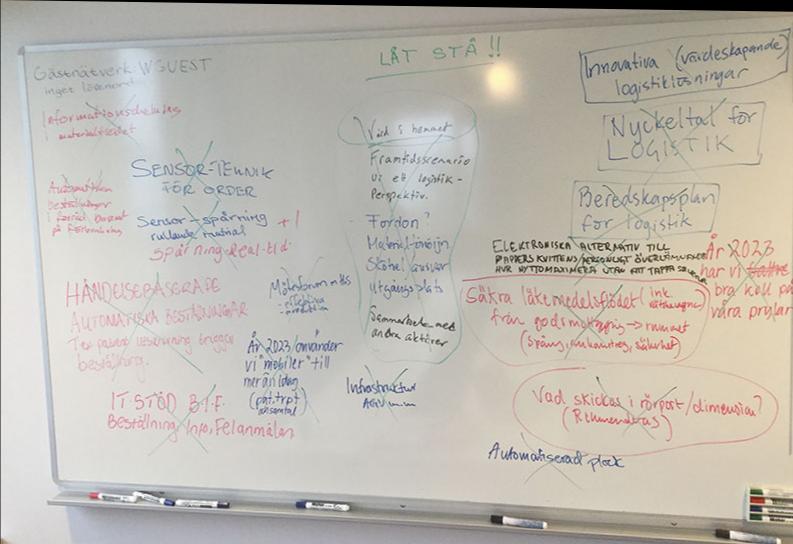 LÅT STÅ !!
Gästnätverk WGUEST
inget lösenord
Informationsdelning
i materialflödet
SENSOR-TEKNIK
FÖR ORDER
Automatiska
beställningar
i förråd baserat
på förbrukning
Sensor-spårning
rullande material
+1
Spårning Real-tid.
HÄNDELSEBASERADE
AUTOMATISKA BESTÄLLNINGAR
beställning.
Mötesforum
- effektiva
År 2023 använder
vi "mobiler" till
mer än idag
(pat.trpt
IT-STÖD B.I.F.
Beställning, Info, Felanmälan
Vård i hemmet
Framtidsscenario
ur ett logistik-
perspektiv.
Fordon?
Material
ansvar
utgångsplats
Samarbete med
andra aktörer
Infrastruktur
Innovativa (värdeskapande)
logistiklösningar
Nyckeltal för
LOGISTIK
Beredskapsplan
för logistik
ELEKTRONISKA ALTERNATIV TILL
PAPPERSKVITTENS/PERSONLIGT ÖVERLÄMNANDE
HUR NYTTOMAXIMERA UTAN ATT TAPPA
År 2023
har vi
bra koll på
våra prylar
Säkra läkemedelsflödet (ink
från godsmottagning → rummet
säkerhet)
Vad skickas i rörpost/dimension?
Automatiserad plock